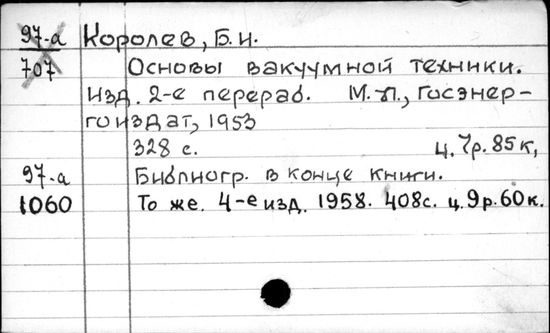 97-а Королев, Б.И.
707 Основы вакуумной техники.
Изд. 2-е перераб. М.-Л., Госэнер-
гоиздат, 1953
328 с. ц. 7р. 85к,
97-а Библиогр. в конце книги.
1060 То же. 4-е изд. 1958. 408с. ц. 9р. 60к.